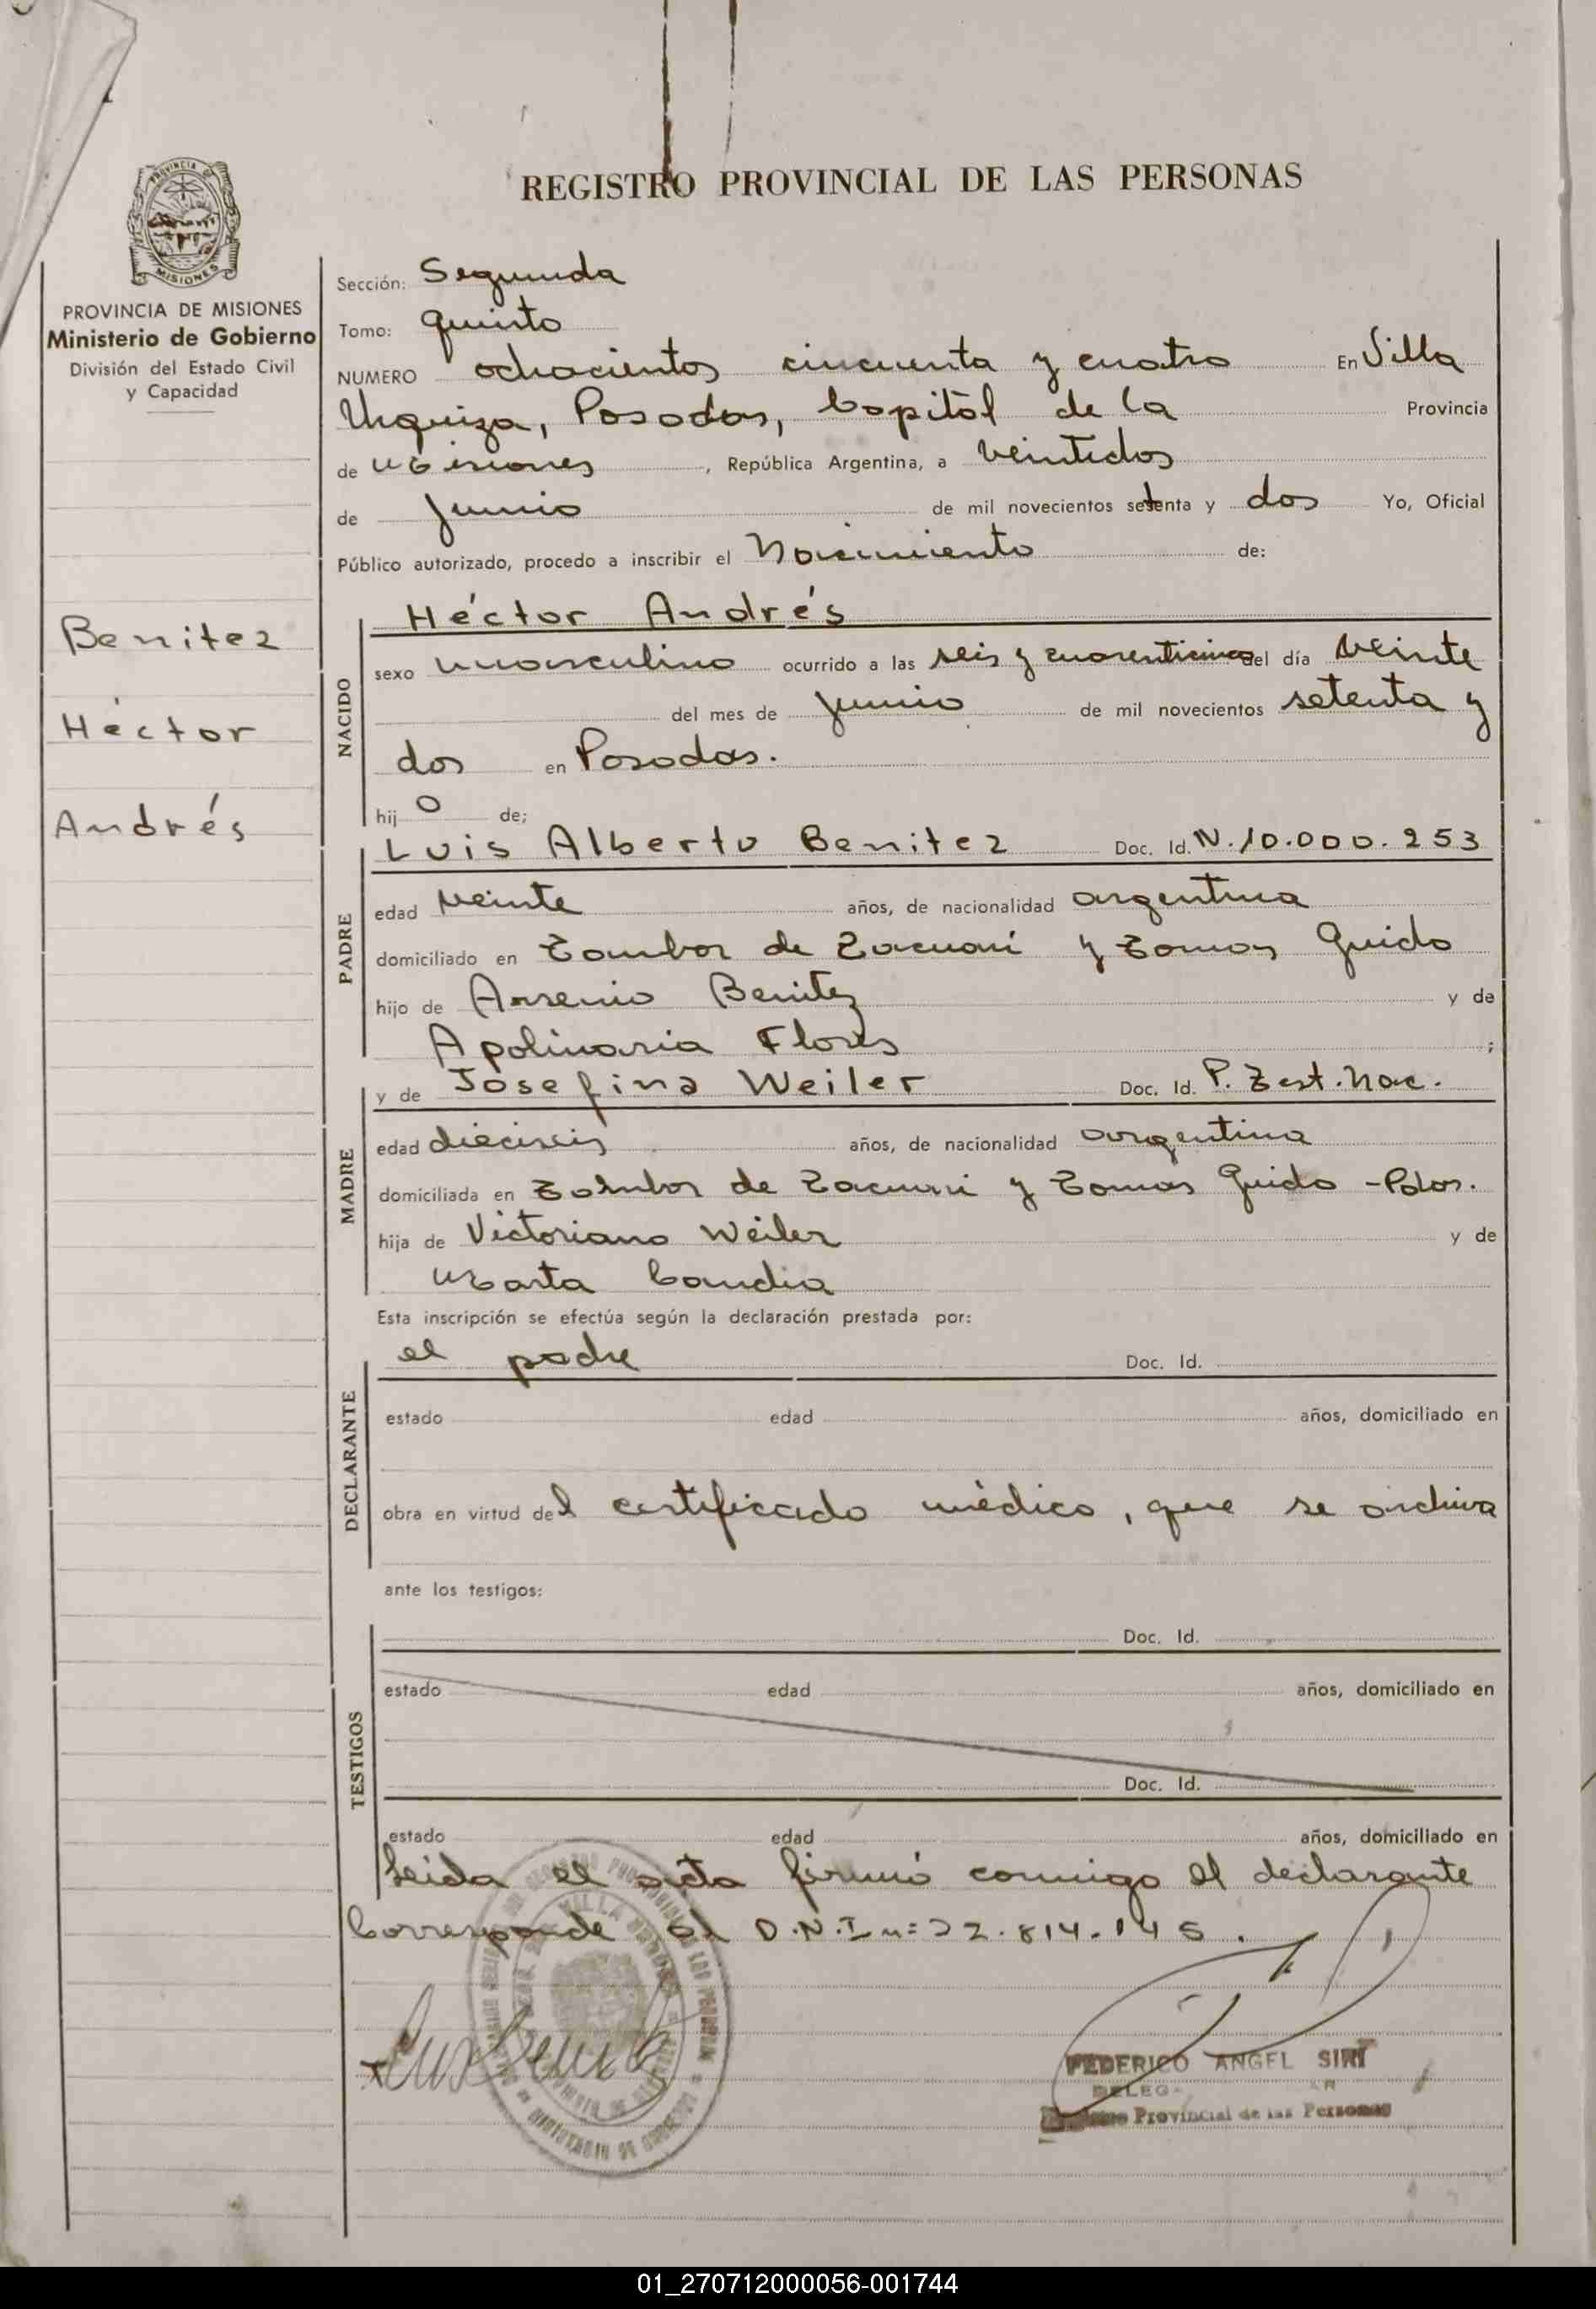 REGISTRO PROVINCIAL DE LAS PERSONAS
PROVINCIA DE MISIONES
Ministerio de Gobierno
División del Estado Civil
y Capacidad
Benitez
Héctor
Andrés
Sección: Segunda
Tomo: quinto
NUMERO ochocientos cincuenta y cuatro En Villa
Urquiza, Posadas, Capital de la Provincia
de Misiones, República Argentina, a veintidos
de Junio de mil novecientos setenta y dos Yo, Oficial
Público autorizado, procedo a inscribir el Nacimiento de:
NACIDO
Héctor Andrés
sexo masculino ocurrido a las seis y cuarenticinco del día veinte
del mes de Junio de mil novecientos setenta y
dos en Posadas.
hijo de;
PADRE
Luis Alberto Benitez Doc. Id. N. 10.000.253
edad veinte años, de nacionalidad argentina
domiciliado en Tambor de Tacuarí y Tomas Guido
hijo de Arsenio Benitez y de
Apolinaria Flores ;
MADRE
y de Josefina Weiler Doc. Id. P. Test. Nac.
edad dieciseis años, de nacionalidad argentina
domiciliada en Tambor de Tacuari y Tomas Guido - Pdas.
hija de Victoriano Weiler y de
Marta Candia
Esta inscripción se efectúa según la declaración prestada por:
DECLARANTE
el padre Doc. Id.
estado edad años, domiciliado en
obra en virtud del certificado médico, que se archiva
ante los testigos:
TESTIGOS
Doc. Id.
estado edad años, domiciliado en
Doc. Id.
estado edad años, domiciliado en
Leida el acta firmó conmigo el declarante
Corresponde al D.N.I n= 22.814.145.
Luis Benitez
FEDERICO ANGEL SIRI
Provincial de las Personas
01_270712000056-001744